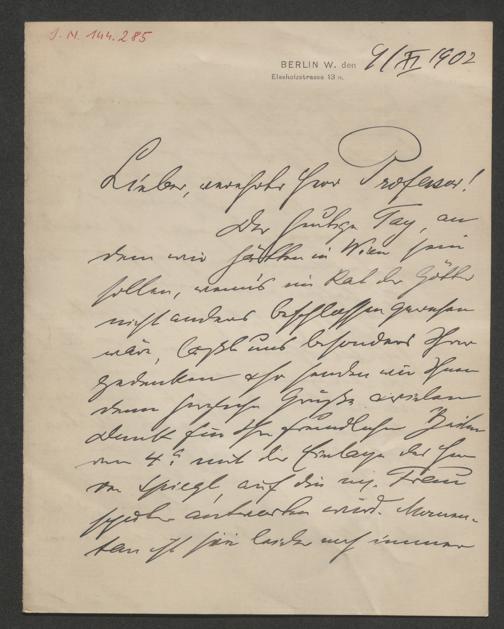 J. N. 144.285
BERLIN W. den 9/XI 1902
Elssholzstrasse 13 II.
Lieber, verehrter Herr Professor!
Der heutige Tag, an
dem wir hätten in Wien sein
sollen, wenn's im Rat der Götter
nicht anders beschlossen gewesen
wäre, läßt uns besonders Ihrer
gedenken & so senden wir Ihnen
denn herzliche Grüße & vielen
Dank für Ihre freundlichen Zeilen
vom 4. mit der Einlage des Herrn
von Spiegl, auf die m. Frau
selber antworten wird. Momen-
tan ist sie leider noch immer